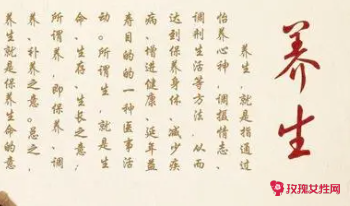 养生
养生，就是指通过
怡养心神、调摄情志、
调剂生活等方法，从而
达到保养身体、减少疾
病、增进健康、延年益
寿目的的一种医事活
动。所谓生，就是生
命、生存、生长之意；
所谓养，即保养、调
养、补养之意。总之，
养生就是保养生命的意
玫瑰女性网